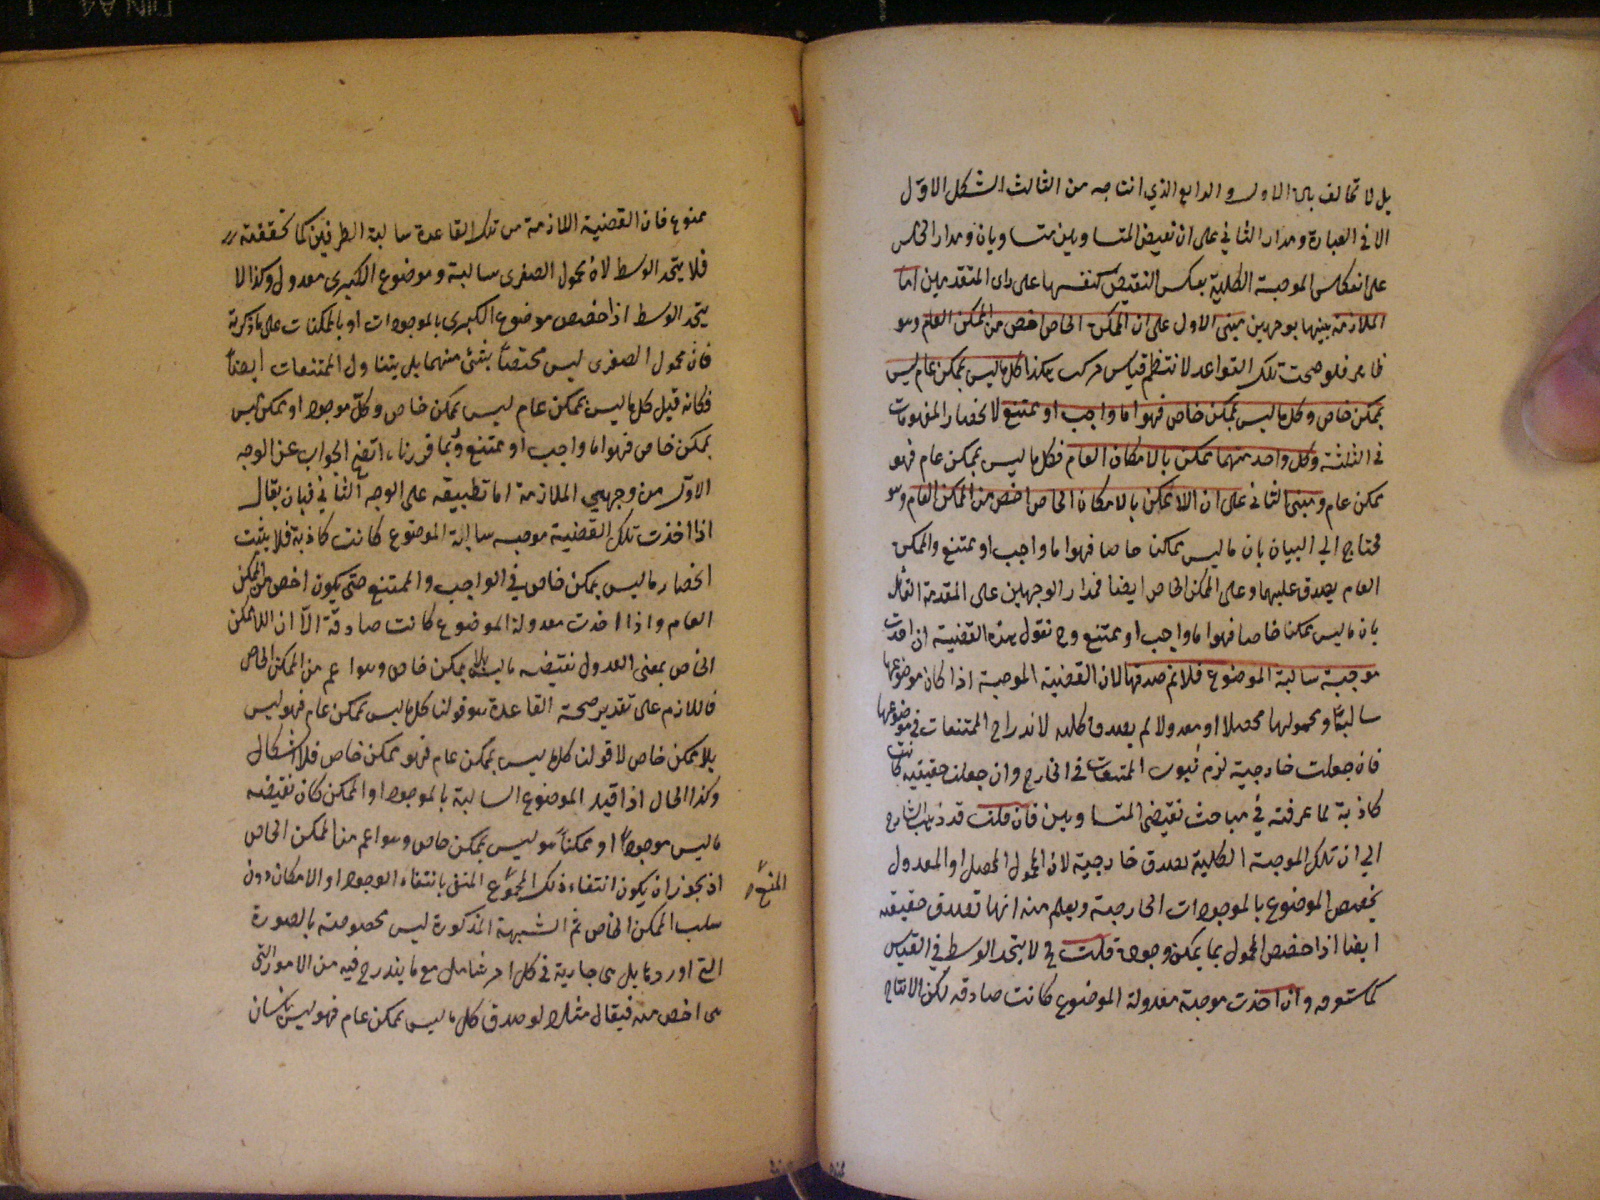 بل لا تخالف بين الاول والرابع الذي انتاجه من الثالث الشكل الاول
الا في العبارة ومدار الثاني على ان نقيض المتساويين متساويان ومدار الخامس
على انعكاس الموجبة الكلية بعكس النقيض كنفسها على راى المتقدمين اما
الملازمة بينها بوجهين مبنى الاول على ان الممكن الخاص اخص من الممكن العام وهو
ظاهر فلو صحت تلك القواعد لانتظم قياس مركب هكذا كل ما ليس بممكن عام ليس
بممكن خاص وكل ما ليس بممكن خاص فهو اما واجب او ممتنع لانحصار المفهومات
في الثلثة وكل واحد منهما ممكن بالامكان العام فكل ما ليس بممكن عام فهو
ممكن عام ومبنى الثاني على ان اللاممكن بالامكان الخاص اخص من الممكن العام وهو
محتاج الى البيان بان ما ليس ممكنا خاصا فهو اما واجب او ممتنع والممكن
العام يصدق عليهما وعلى الممكن الخاص ايضا فمدار الوجهين على المقدمة القائلة
بان ما ليس ممكنا خاصا فهو اما واجب او ممتنع وح نقول هذه القضية ان اخذت
موجبة سالبة الموضوع فلا نم صدقها لان القضية الموجبة اذا كان موضوعها
سالبا ومحمولها محصلا او معدولا لم يصدق كلية لاندراج الممتنعات في موضوعها
فان جعلت خارجية لزم ثبوت الممتنعات في الخارج وان جعلت حقيقية كانت
كاذبة لما عرفته في مباحث نقيضى المتساويين فان قلت قد ذهب الشارح
الى ان تلك الموجبة الكلية يصدق خارجية لان المحمول المحصل او المعدول
يخصص الموضوع بالموجودات الخارجية ويعلم منه انها تصدق حقيقية
ايضا اذا خصص المحمول بما يمكن وجوده قلت فح لا يتحد الوسط في القياس
كما ستعرفه وان اخذت موجبة معدولة الموضوع كانت صادقة لكن الانتاج
ممنوع فان القضية اللازمة من تلك القاعدة سالبة الطرفين كما تحققته
فلا يتحد الوسط لان محمول الصغرى سالبة وموضوع الكبرى معدول وكذا لا
يتحد الوسط اذا خصص موضوع الكبرى بالموجودات او بالممكنات على ما ذكرته
فان محمول الصغرى ليس مختصا بشئ منهما بل يتناول الممتنعات ايضا
فكانه قيل كل ما ليس بممكن عام ليس بممكن خاص وكل موجود او ممكن ليس
بممكن خاص فهو اما واجب او ممتنع وبما قررناه اتضح الجواب عن الوجه
الاول من وجهى الملازمة اما تطبيقه على الوجه الثاني فبان يقال
اذا اخذت تلك القضية موجبه سالبة الموضوع كانت كاذبة فلا يثبت
انحصار ما ليس بممكن خاص في الواجب والممتنع حتى يكون اخص من الممكن
العام واذا اخذت معدولة الموضوع كانت صادقة الا ان اللاممكن
الخاص بمعنى العدول نقيضه ما ليس بلا ممكن خاص وهو اعم من الممكن الخاص
فاللازم على تقدير صحة القاعدة هو قولنا كل ما ليس بممكن عام فهو ليس
بلا ممكن خاص لا قولنا كل ما ليس بممكن عام فهو ممكن خاص فلا اشكال
وكذا الحال اذا قيد الموضوع السالبة بالموجود او الممكن كان نقيضه
ما ليس موجودا او ممكنا هو ليس بممكن خاص وهو اعم من الممكن الخاص
اذ يجوز ان يكون انتفاء ذلك المجموع المنفى بانتفاء الوجود او الامكان دون
سلب الممكن الخاص ثم الشبهة المذكورة ليس مخصوصة بالصورة
التي اوردها بل هي جارية في كل امر شامل مع ما يندرج فيه من الامور التي
هى اخص منه فيقال مثلا لو صدق كل ما ليس بممكن عام فهو ليس بانسان